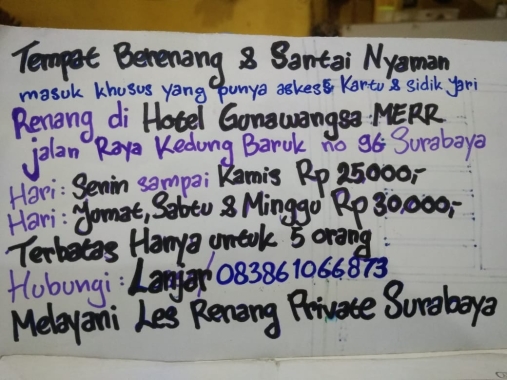 Tempat Berenang & Santai Nyaman
masuk khusus yang punya askes & Kartu & sidik jari
Renang di Hotel Gunawangsa MERR
jalan Raya Kedung Baruk no 96 Surabaya
Hari: Senin sampai Kamis Rp 25000,-
Hari: Jumat, Sabtu & Minggu Rp 30.000,-
Terbatas Hanya untuk 5 orang
Hubungi: Lanjar 083861066873
Melayani Les Renang Private Surabaya